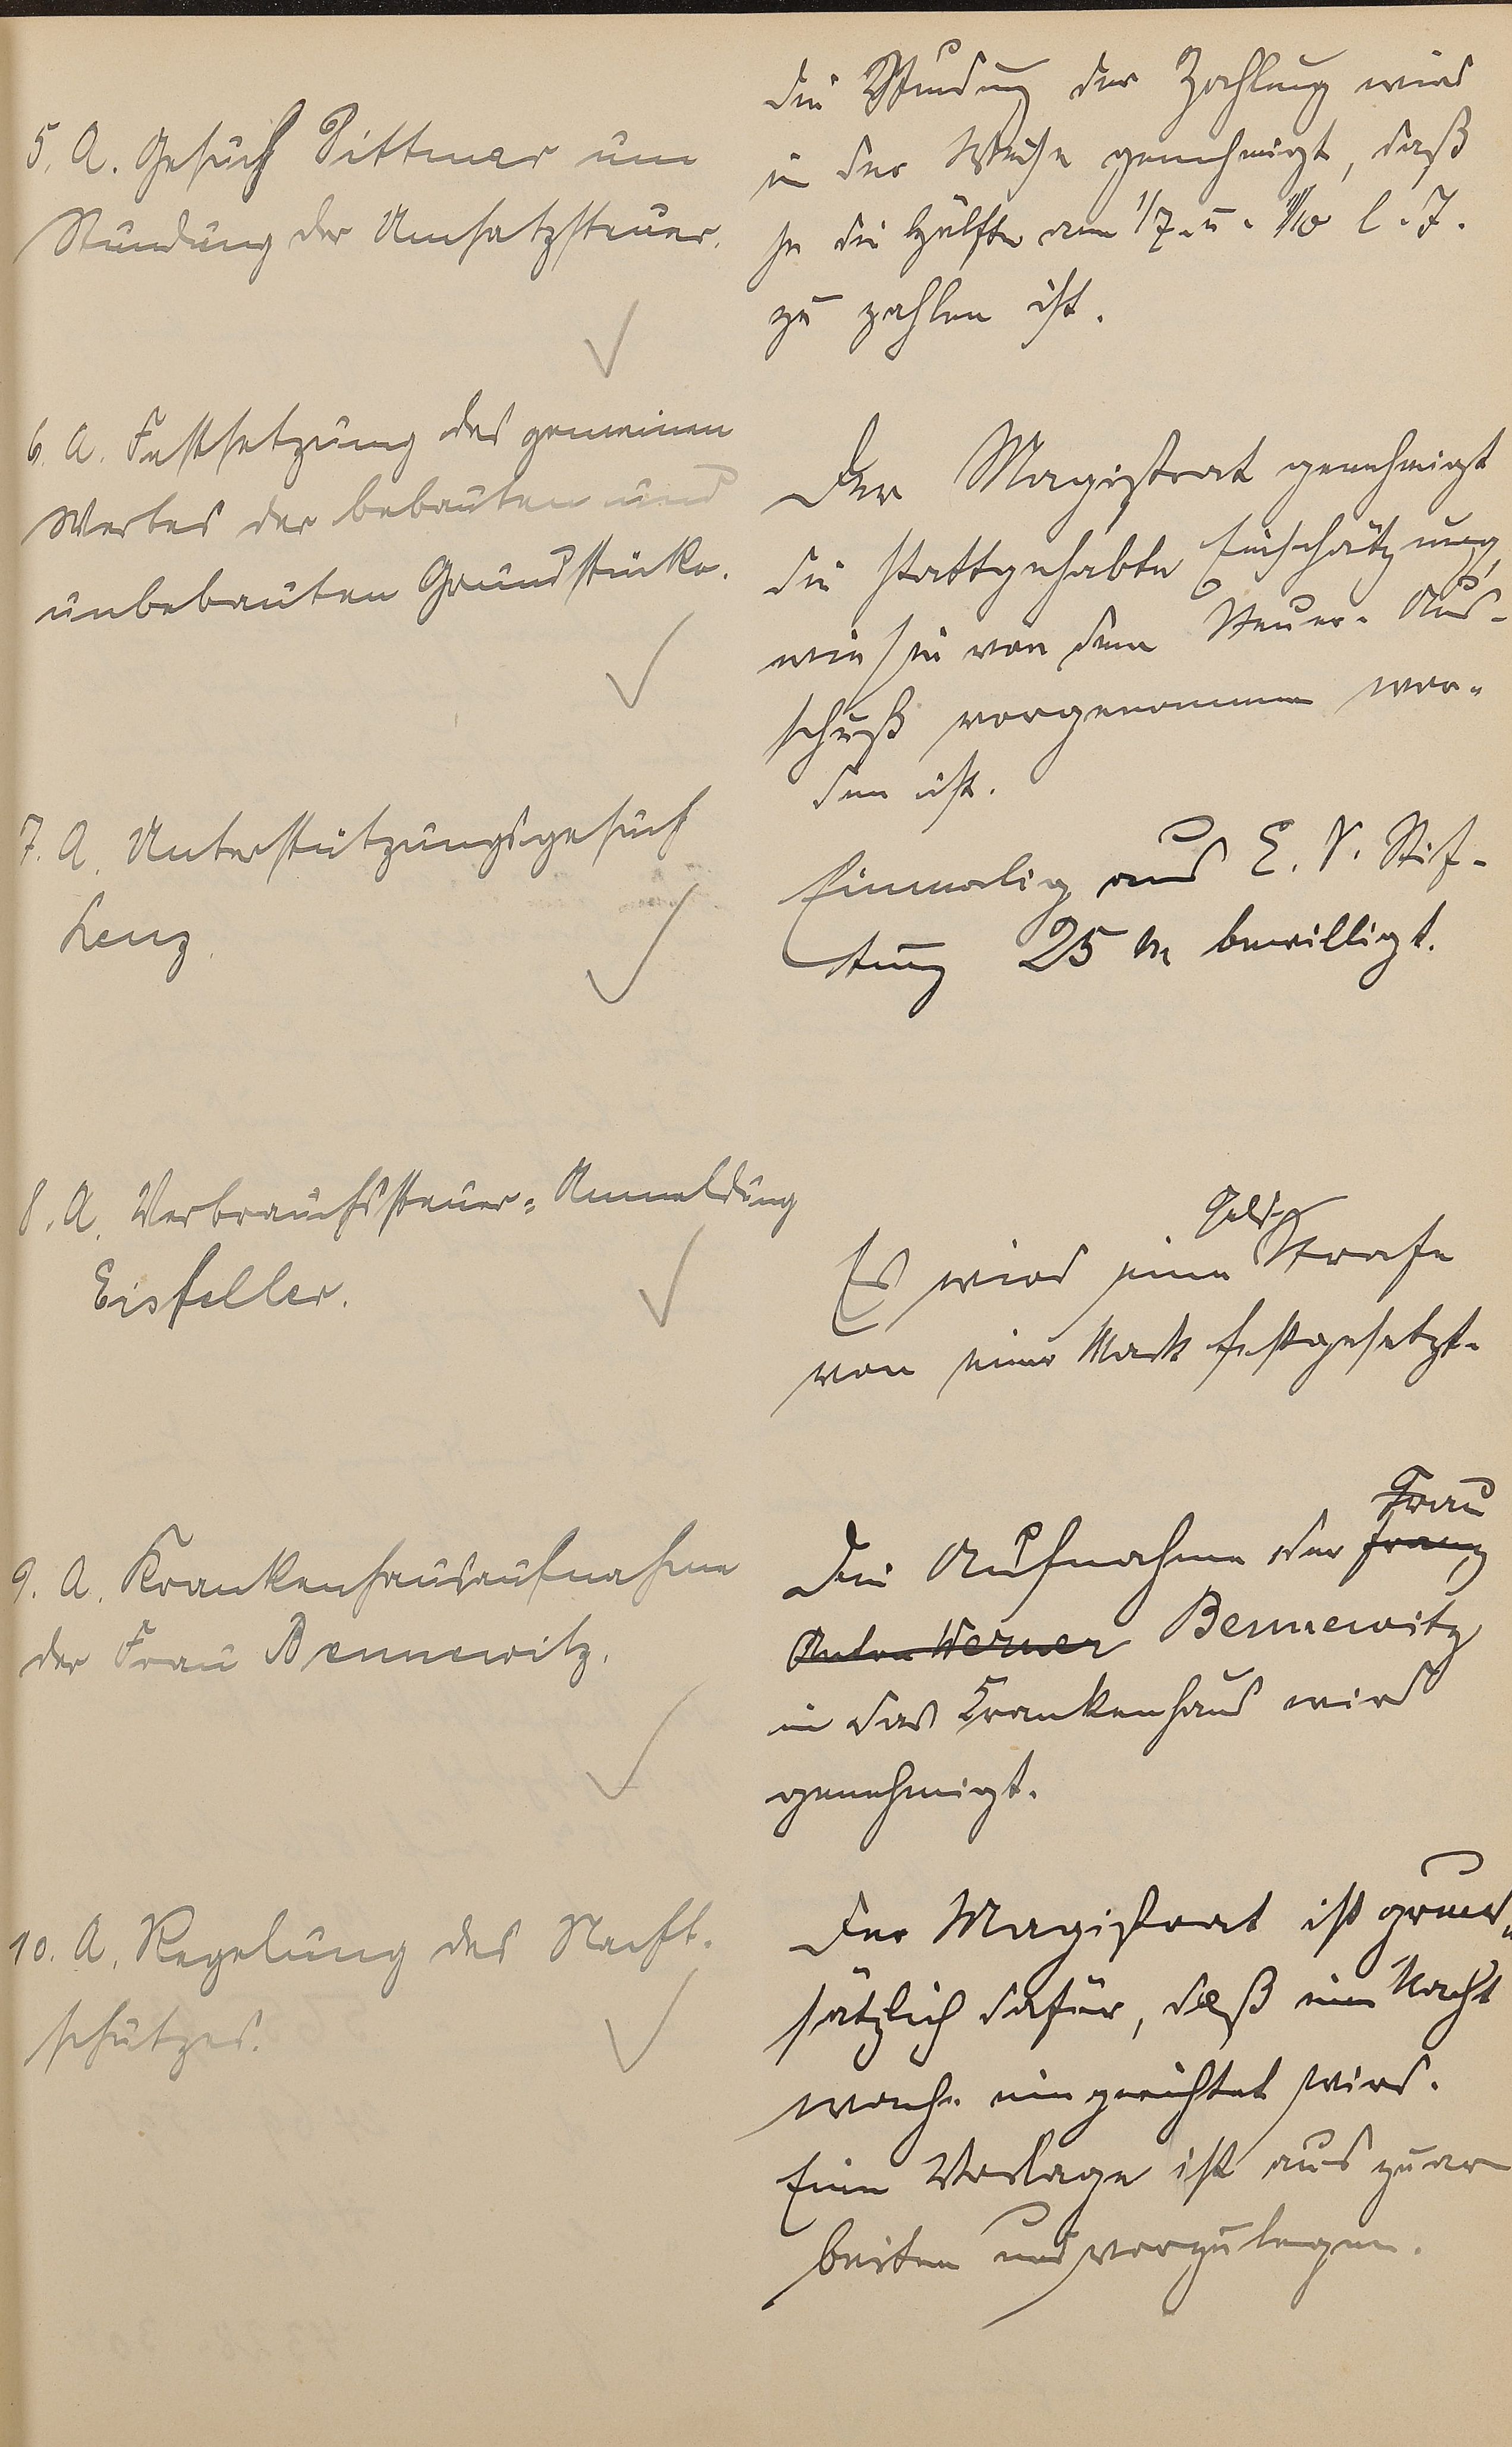 5. A. Gesuch Dittmar um
Stundung der Umsatzsteuer.
die Stundung der Zahlung wird
in der Weise genehmigt, daß
je die Hälfte am 1/7. u. 1/10 l. J.
zu zahlen ist.
6. A. Festsetzung des gemeinen
Wertes der bebauten und
unbebauten Grundstücke.
Der Magistrat genehmigt
die stattgehabte Einschätzung,
wie sie von dem Steuer-Aus-
schuß vorgenommen wor-
den ist.
7. A. Unterstützungsgesuch
Lenz.
Einmalig aus E. V. Stif-
tung 25 M bewilligt.
8. A. Verbrauchssteuer-Anmeldung
Eisfeller.
Geld-
Es wird eine Strafe
von einer Mark festgesetzt.
9. A. Krankenhausaufnahme
der Frau Bennewitz.
Frau
Die Aufnahme der Franz
Anton Werner Bennewitz
in das Krankenhaus wird
genehmigt.
10. A. Regelung des Nacht-
schutzes.
Der Magistrat ist grund-
sätzlich dafür, daß eine Nacht
wache eingerichtet wird.
Eine Vorlage ist auszuar
beiten und vorzulegen.